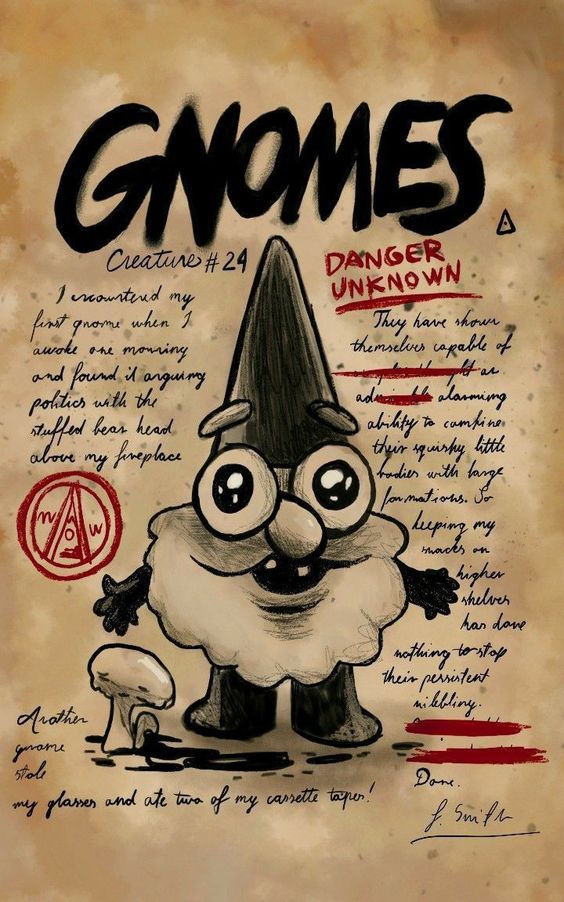 GNOMES.
Creature #24
DANGER
UNKNOWN
I encountered my
first gnome when I
awoke one morning
and found it arguing
politics with the
stuffed bear head
above my fireplace
They have shown
themselves capable of
an
alarming
ability to combine
their squishy little
bodies with large
formations. So
keeping my
snacks on
higher
shelves
has done
nothing to stop
their persistent
nibbling.
Done.
Another
gnome
stole
my glasses and ate two of my cassette tapes!
N W